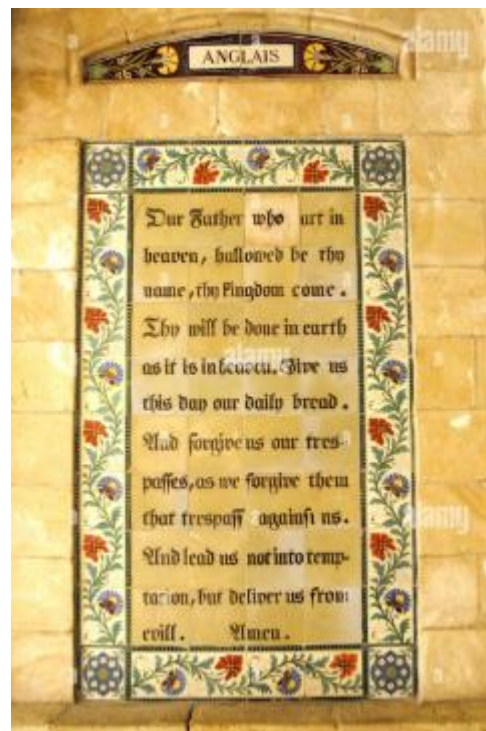 ANGLAIS
Our Father who art in
heaven, hallowed be thy
name, thy Kingdom come.
Thy will be done in earth
as it is in heaven. Give us
this day our daily bread.
And forgive us our tres-
passes, as we forgive them
that trespass against us.
And lead us not into temp-
tation, but deliver us from
evill. Amen.
alamy
alamy
alamy